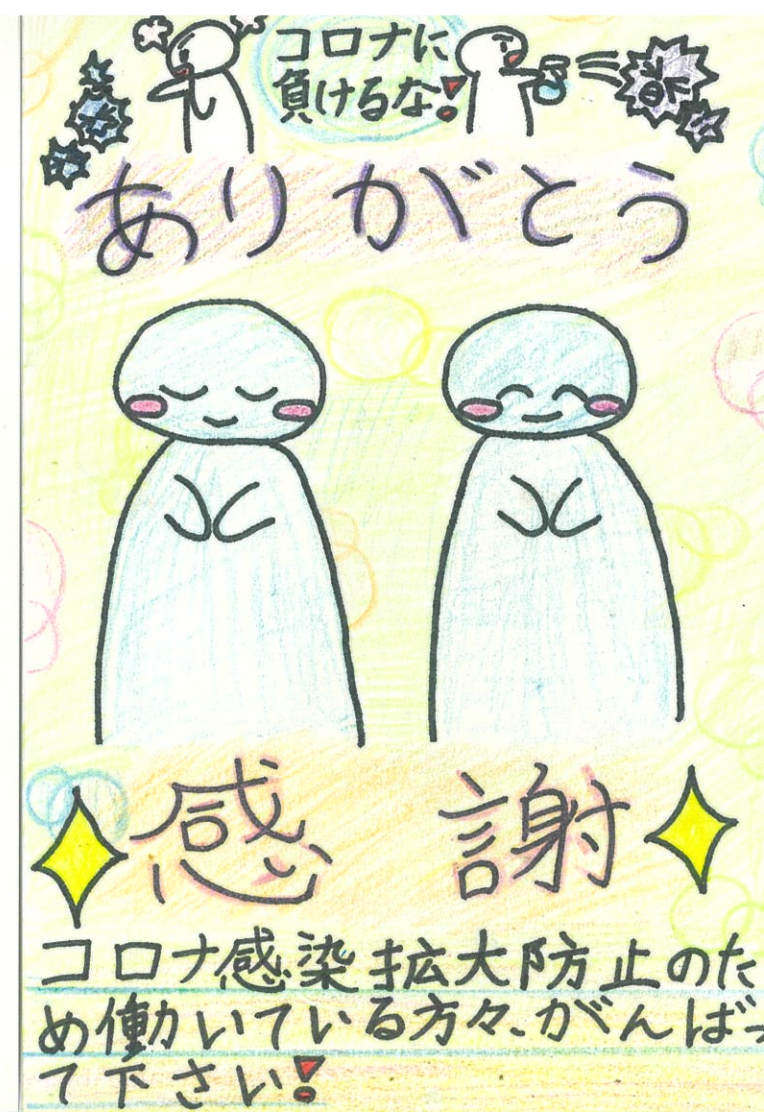 コロナに
負けるな!
ありがとう
感謝
コロナ感染拡大防止のた
め働いている方々、がんばっ
て下さい!